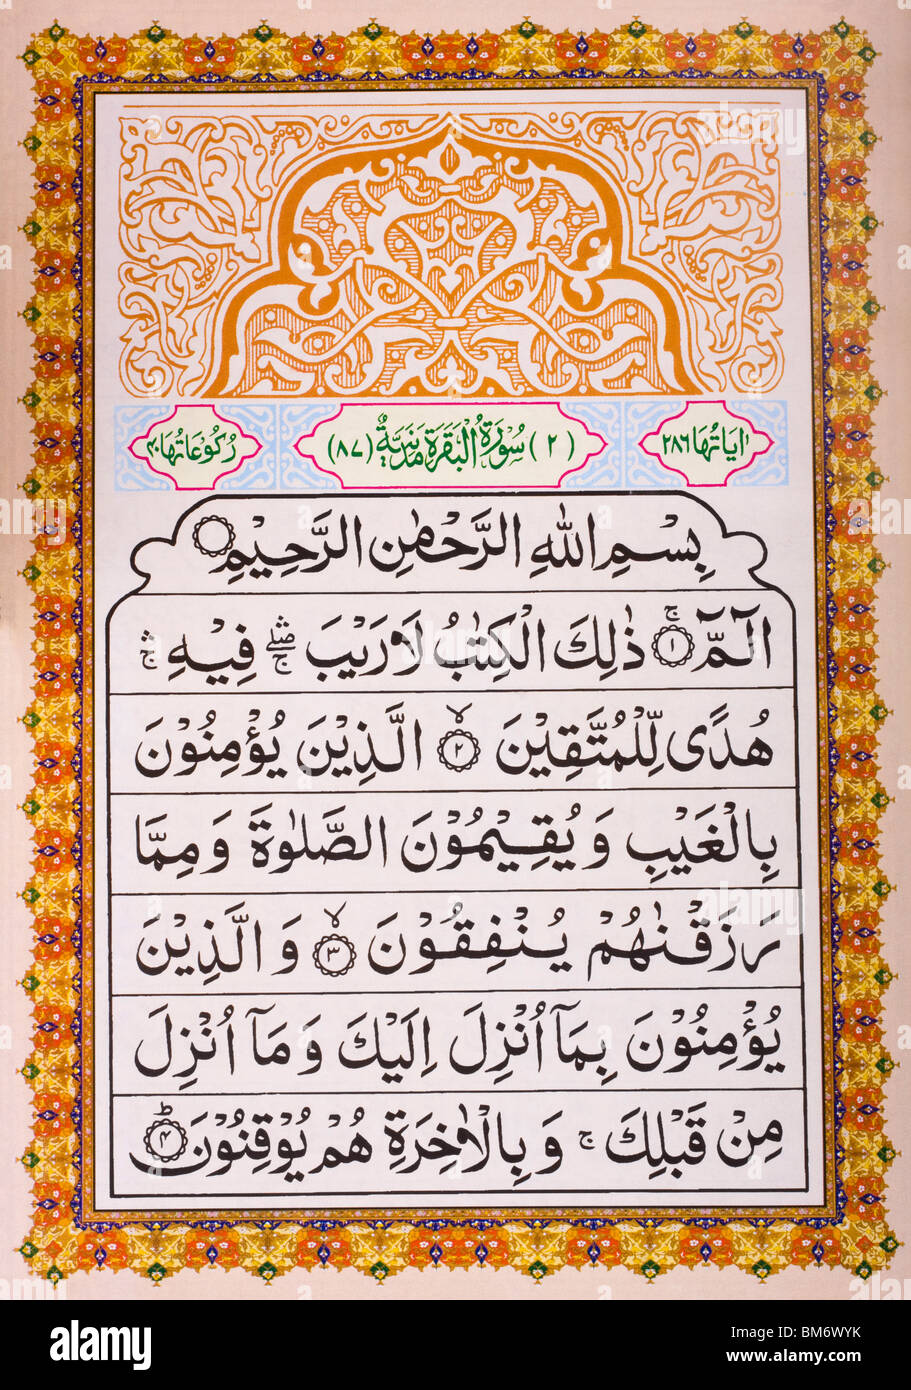 اٰيَاتُهَا ٢٨٦ (٢) سُوْرَةُ الْبَقَرَةِ مَدَنِيَّةٌ (٨٧) رُكُوْعَاتُهَا ٤٠
بِسْمِ اللهِ الرَّحْمٰنِ الرَّحِيْمِ ۝
الٓمّٓ ۚ ﴿١﴾ ذٰلِكَ الْكِتٰبُ لَا رَيْبَ ۖۛۚ فِيْهِ ۛۚ
هُدًى لِّلْمُتَّقِيْنَ ﴿٢﴾ الَّذِيْنَ يُؤْمِنُوْنَ
بِالْغَيْبِ وَيُقِيْمُوْنَ الصَّلٰوةَ وَمِمَّا
رَزَقْنٰهُمْ يُنْفِقُوْنَ ﴿٣﴾ وَالَّذِيْنَ
يُؤْمِنُوْنَ بِمَآ اُنْزِلَ اِلَيْكَ وَمَآ اُنْزِلَ
مِنْ قَبْلِكَ ۚ وَبِالْاٰخِرَةِ هُمْ يُوْقِنُوْنَ ﴿٤﴾
alamy
Image ID: BM6WYK
www.alamy.com